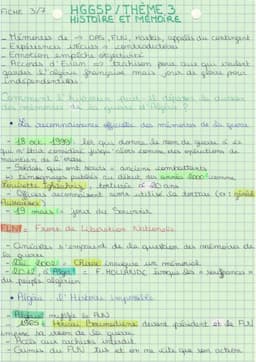 FICHE 3/7
HGGSP / THÈME 3
HISTOIRE ET MÉMOIRE
- Mémoires de → OAS, FLN, harkis, appelés du contingent
- Expériences vécues = contradictoires
- Emotion empêche objectivité
- Accords d'Evian => trahison pour ceux qui voulait
garder l'algérie française mais jour de gloire pour
l'indépendantistes
Comment l'historien peut il
des mémoires de la guerre d'Algérie ?
• La reconnaissance officielle des mémoires de la guerre
- 18 oct. 1999 : loi qui donne le nom de guerre à ce
qui n'était considéré jusqu'alors comme des opérations de
maintien de l'ordre
- Soldats qui ont = anciens combattants
- Témoignages publiés au début des années 2000 comme
Louisette Ighilahriz, torturée à 20 ans
- Officiers reconnaissent avoir utilisé la torture (ex : général
Aussaresses)
- 19 mars = jour du Souvenir
FLN = Front de Libération Nationale
- Cinéastes s'emparent de la question des mémoires de
la guerre
- Déc 2002 = Chirac inaugure un mémorial
- 2012, à Alger = F. HOLLANDE évoque les « souffrances »
du peuple algérien
• Algérie : l'Histoire impossible
- Algérie mythifie le FLN
- 1965 = Houari Boumediene devient président et le FLN
impose sa vision de la guerre
- Accès aux archives interdit
- Crimes du FLN tus et on ne cite que son action